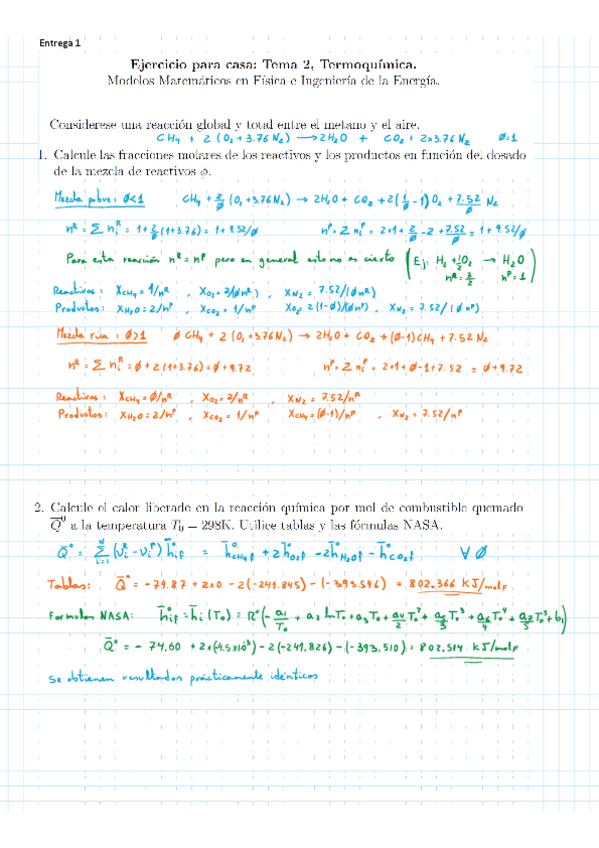 Entrega 1
Ejercicio para casa: Tema 2, Termoquímica.
Modelos Matemáticos en Física e Ingeniería de la Energía.
Considerese una reacción global y total entre el metano y el aire.
CH₄ + 2 (O₂+3.76 N₂) → 2H₂O + CO₂ + 2x3.76 N₂ Ø=1
1. Calcule las fracciones molares de los reactivos y los productos en función del dosado
de la mezcla de reactivos φ.
Mezcla pobre: Ø<1 CH₄ + 2/Ø (O₂+3.76N₂) → 2H₂O + CO₂ + 2(1/Ø - 1) O₂ + 7.52/Ø N₂
nᴿ = Σ nᵢᴿ = 1 + 2/Ø (1+3.76) = 1 + 9.52/Ø nᴾ = Σ nᵢᴾ = 2+1+ 2/Ø - 2 + 7.52/Ø = 1 + 9.52/Ø
Para esta reacción nᴿ = nᴾ pero en general esto no es cierto (Ej: H₂ + 1/2 O₂ → H₂O
nᴿ = 3/2 nᴾ = 1)
Reactivos: X_CH₄ = 1/nᴿ , X_O₂ = 2/(Ø nᴿ) , X_N₂ = 7.52/(Ø nᴿ)
Productos: X_H₂O = 2/nᴾ , X_CO₂ = 1/nᴾ X_O₂ = 2(1-Ø)/(Ø nᴾ) , X_N₂ = 7.52/(Ø nᴾ)
Mezcla rica: Ø>1 Ø CH₄ + 2 (O₂+3.76N₂) → 2H₂O + CO₂ + (Ø-1)CH₄ + 7.52 N₂
nᴿ = Σ nᵢᴿ = Ø + 2(1+3.76) = Ø + 9.72 nᴾ = Σ nᵢᴾ = 2+1+Ø-1+7.52 = Ø + 9.72
Reactivos: X_CH₄ = Ø/nᴿ , X_O₂ = 2/nᴿ , X_N₂ = 7.52/nᴿ
Productos: X_H₂O = 2/nᴾ , X_CO₂ = 1/nᴾ X_CH₄ = (Ø-1)/nᴾ , X_N₂ = 7.52/nᴾ
2. Calcule el calor liberado en la reacción química por mol de combustible quemado
Q̄⁰ a la temperatura T₀ = 298K. Utilice tablas y las fórmulas NASA.
Q̄° = Σ (νᵢʳ - νᵢᵖ) h̄°if = h̄°CH₄f + 2h̄°O₂f - 2h̄°H₂Of - h̄°CO₂f ∀ Ø
Tablas: Q̄° = - 74.87 + 2x0 - 2(-241.845) - (-393.546) = 802.366 kJ/molF
Formulas NASA: h̄°if = h̄i (T₀) = R°(-a₁/T₀ + a₂ lnT₀ + a₃T₀ + a₄/2 T₀² + a₅/3 T₀³ + a₆/4 T₀⁴ + a₇/5 T₀⁵ + b₁)
Q̄° = - 74.60 + 2x(4.5x10⁻³) - 2(-241.826) - (-393.510) = 802.514 kJ/molF
Se obtienen resultados prácticamente idénticos